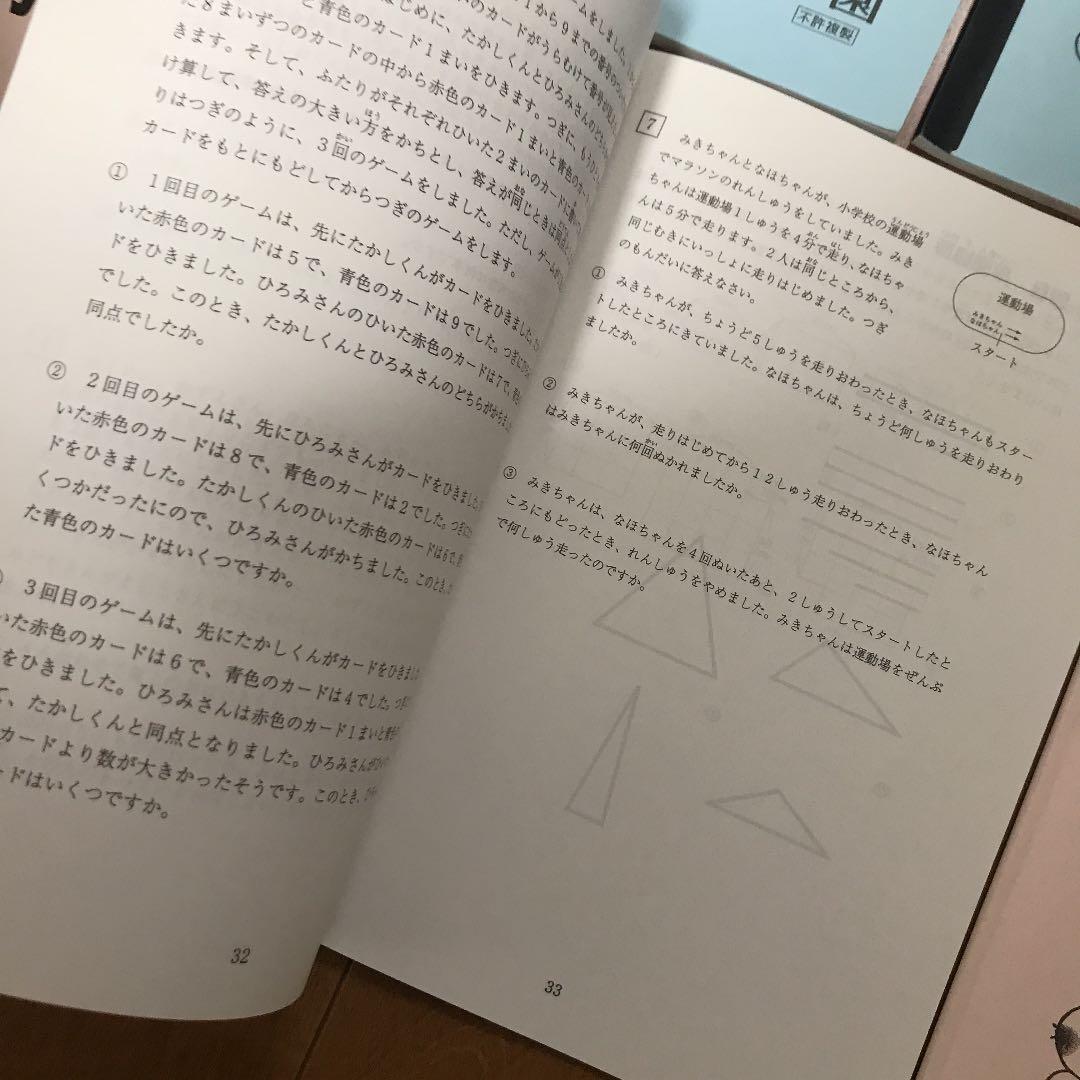 ームをしました。
1から9までの番号の
のカードがうらむけて
はじめに、たかしくんとひろみさんのど
と青色のカード1まいをひきます。つぎに、もう
た8まいずつのカードの中から赤色のカード1まいと青色のカー
きます。そして、ふたりがそれぞれひいた2まいのカードに
け算して、答えの大きい方をかちとし、答えが同じときは同点
りはつぎのように、3回のゲームをしました。ただし、ゲームが
カードをもとにもどしてからつぎのゲームをします。
① 1回目のゲームは、先にたかしくんがカードをひきました。
いた赤色のカードは5で、青色のカードは9でした。つぎに
ドをひきました。ひろみさんのひいた赤色のカードは7で、
でした。このとき、たかしくんとひろみさんのどちらがかち
同点でしたか。
② 2回目のゲームは、先にひろみさんがカードをひきました。
いた赤色のカードは8で、青色のカードは2でした。つぎに
ドをひきました。たかしくんのひいた赤色のカードは6で、
くつかだったので、ひろみさんがかちました。このとき、
た青色のカードはいくつですか。
3回目のゲームは、先にたかしくんがカードをひきまし
いた赤色のカードは6で、青色のカードは4でした。つぎ
をひきました。ひろみさんは赤色のカード1まいと青
、たかしくんと同点となりました。ひろみさんが
カードより数が大きかったそうです。このとき、
ードはいくつですか。
32
7
みきちゃんとなほちゃんが、小学校の運動場
でマラソンのれんしゅうをしていました。みき
ちゃんは運動場1しゅうを4分で走り、なほちゃ
んは5分で走ります。2人は同じところから、
同じむきにいっしょに走りはじめました。つぎ
のもんだいに答えなさい。
運動場
みきちゃん
なほちゃん
スタート
① みきちゃんが、ちょうど5しゅうを走りおわったとき、なほちゃんもスター
トしたところにきていました。なほちゃんは、ちょうど何しゅうを走りおわり
ましたか。
② みきちゃんが、走りはじめてから12しゅう走りおわったとき、なほちゃん
はみきちゃんに何回ぬかれましたか。
③ みきちゃんは、なほちゃんを4回ぬいたあと、2しゅうしてスタートしたと
ころにもどったとき、れんしゅうをやめました。みきちゃんは運動場をぜんぶ
で何しゅう走ったのですか。
33
不許複製